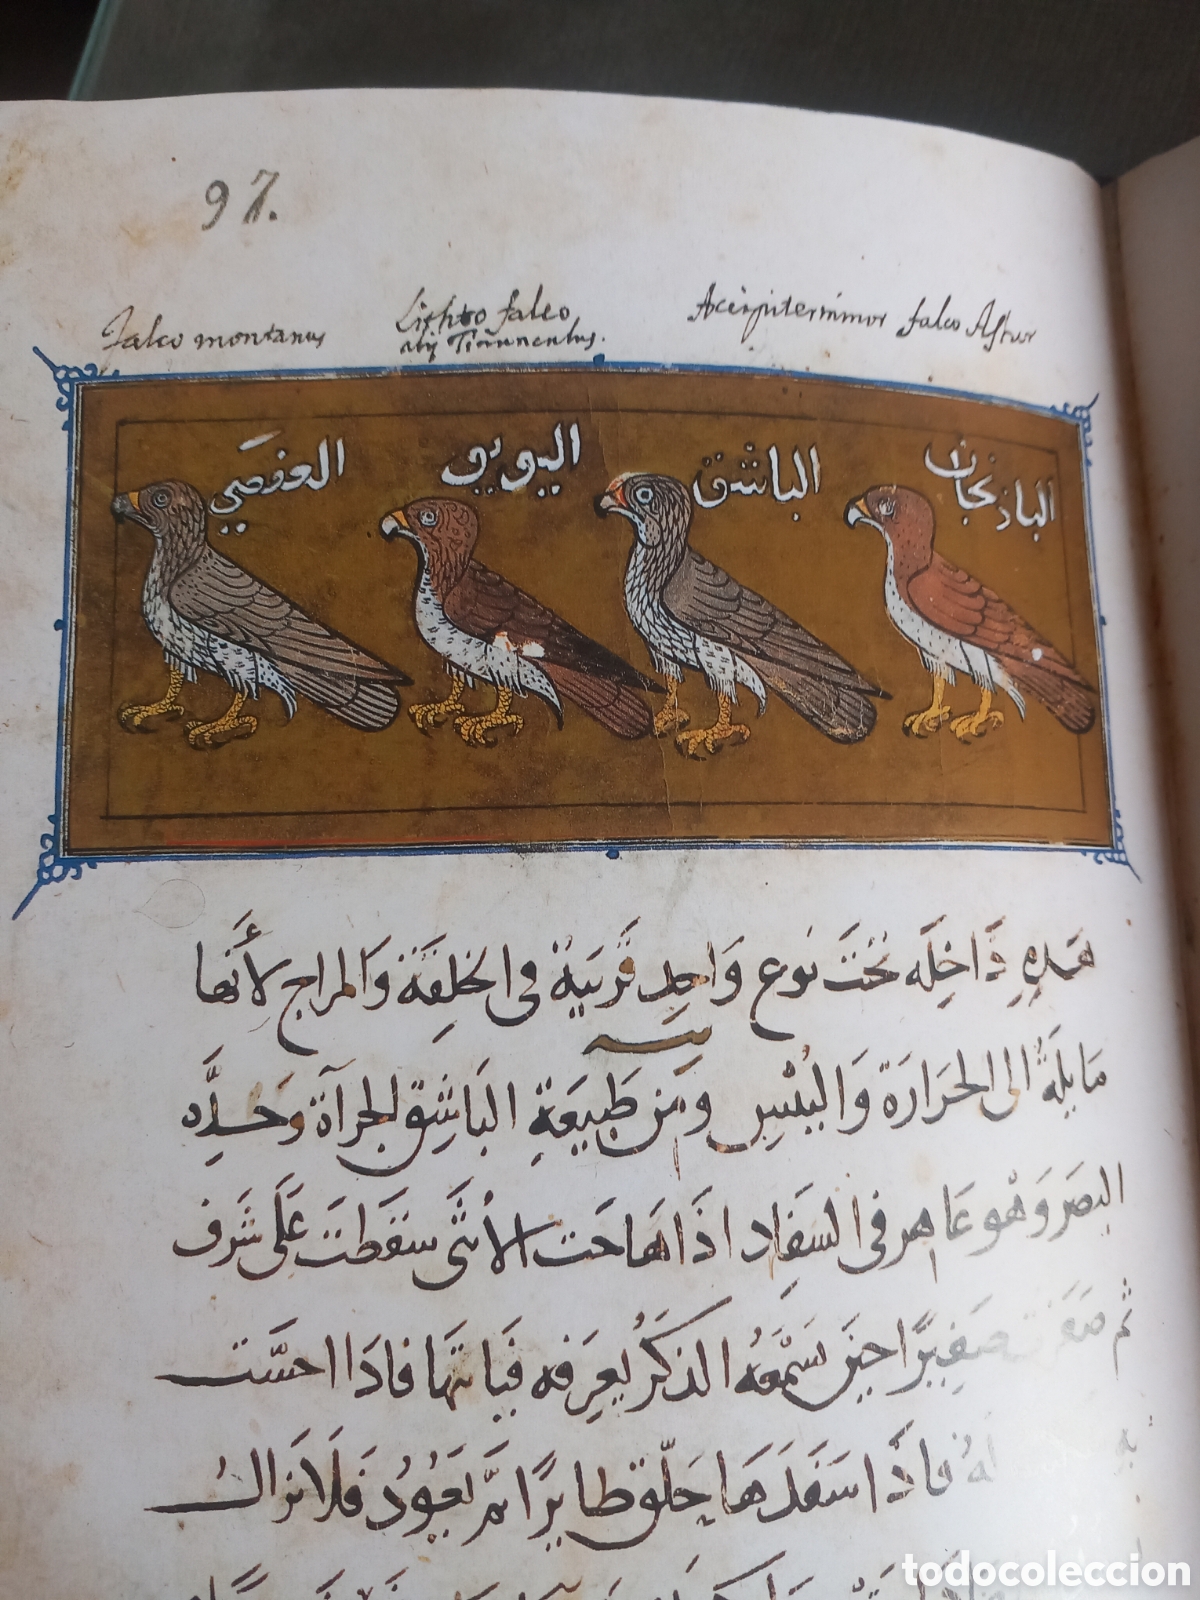 97.
Falco montanus
Lithto falco
alij Tinunculus.
Accipiter minor falco Astur
العفصي
اليويو
الباشق
الباذنجان
هَذِهِ دَاخِلَه تَحْتَ نوع وَاحِدٍ قَرِيبَةٌ فى الخِلقَة وَالمزاج لأَنَّها
مَايلَةٌ الى الحَرَارَة وَاليُبْسِ ومن طَبِيعَةِ البَاشِق الجرآة وَحِدَّه
البصَر وَهْو عَاهر فى السفَاد اذَا هَاجَت الأنثَى سقَطَت عَلَى شَرَف
ثم صفرت صَفِيرًا حِينَ سَمْعَهُ الذكَرُ يعرفه فيَاتيهَا فاذَا احسَّت
به لهُ فاذَا سَفَدَهَا حَلّق طايرًا ثمَّ يَعُودُ فلَا يزَالُ
todocoleccion